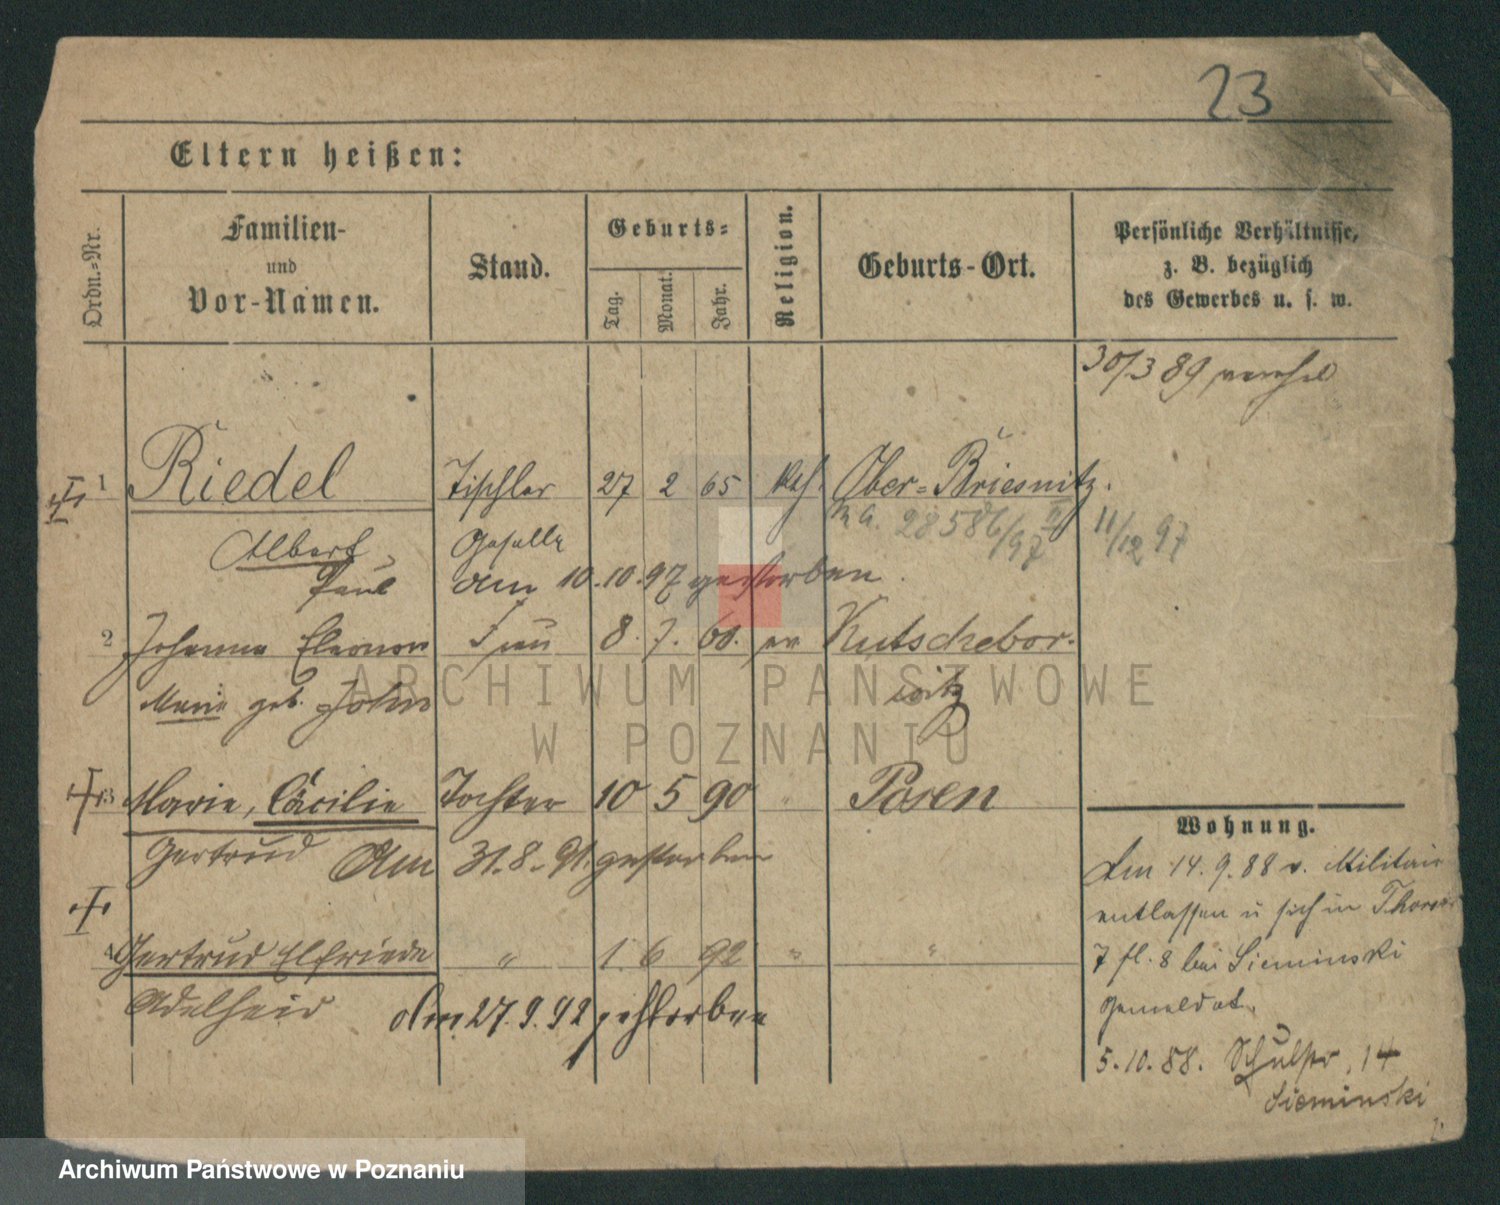 23
Eltern heißen:
Ordn.-Nr.
Familien-
und
Vor-Namen.
Stand.
Geburts-
Tag.
Monat.
Jahr.
Religion.
Geburts-Ort.
Persönliche Verhältnisse,
z. B. bezüglich
des Gewerbes u. s. w.
30/3 89
1 Riedel Tischler 27 2 65 kath. Ober-Briesnitz.
Albert Geselle 28586/97 11/12 97
Paul am 10.10.97 gestorben.
2 Johanna Eleonore Frau 8. 7. 60. ev Kutschebor-
Marie geb. John witz
3 Marie, Cäcilie Tochter 10 5 90 " Posen
Gertrud Am 31.8.91. gestorben
4 Gertrud Elfriede " 1. 6 92 " "
Adelheid Am 27.9.92 gestorben
Wohnung.
Am 14.9.88 v. Militair
entlassen u sich in
7 fl. 8 bei Sieminski
gemeldet.
5.10.88. Schulstr. 14
Sieminski
ARCHIWUM PAŃSTWOWE
W POZNANIU
Archiwum Państwowe w Poznaniu